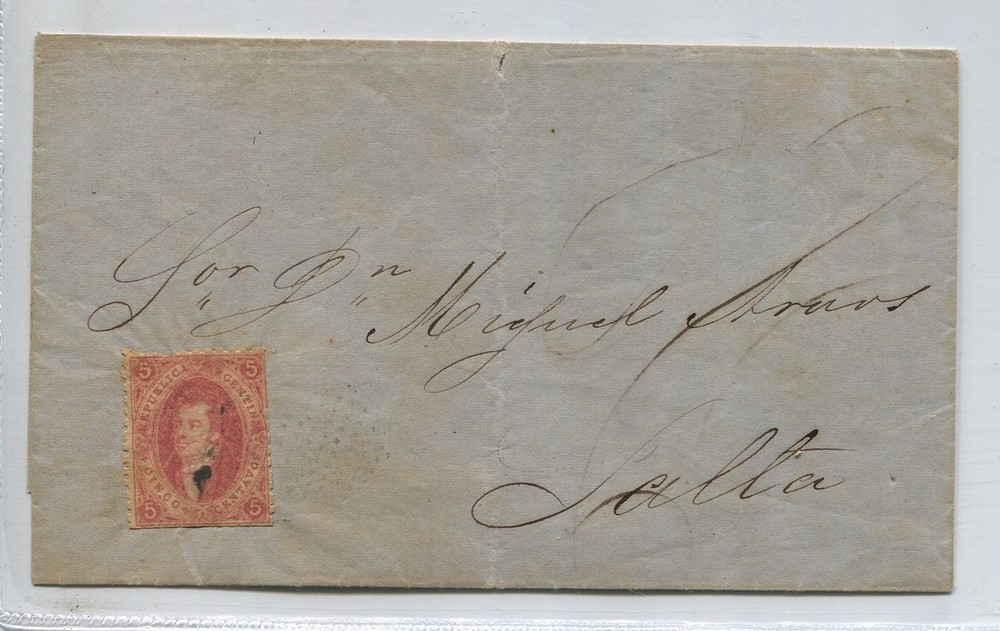 Sor Dn Miguel Araos
Salta
5 5
REPUBLICA ARGENTINA
CINCO CENTAVOS
5 5